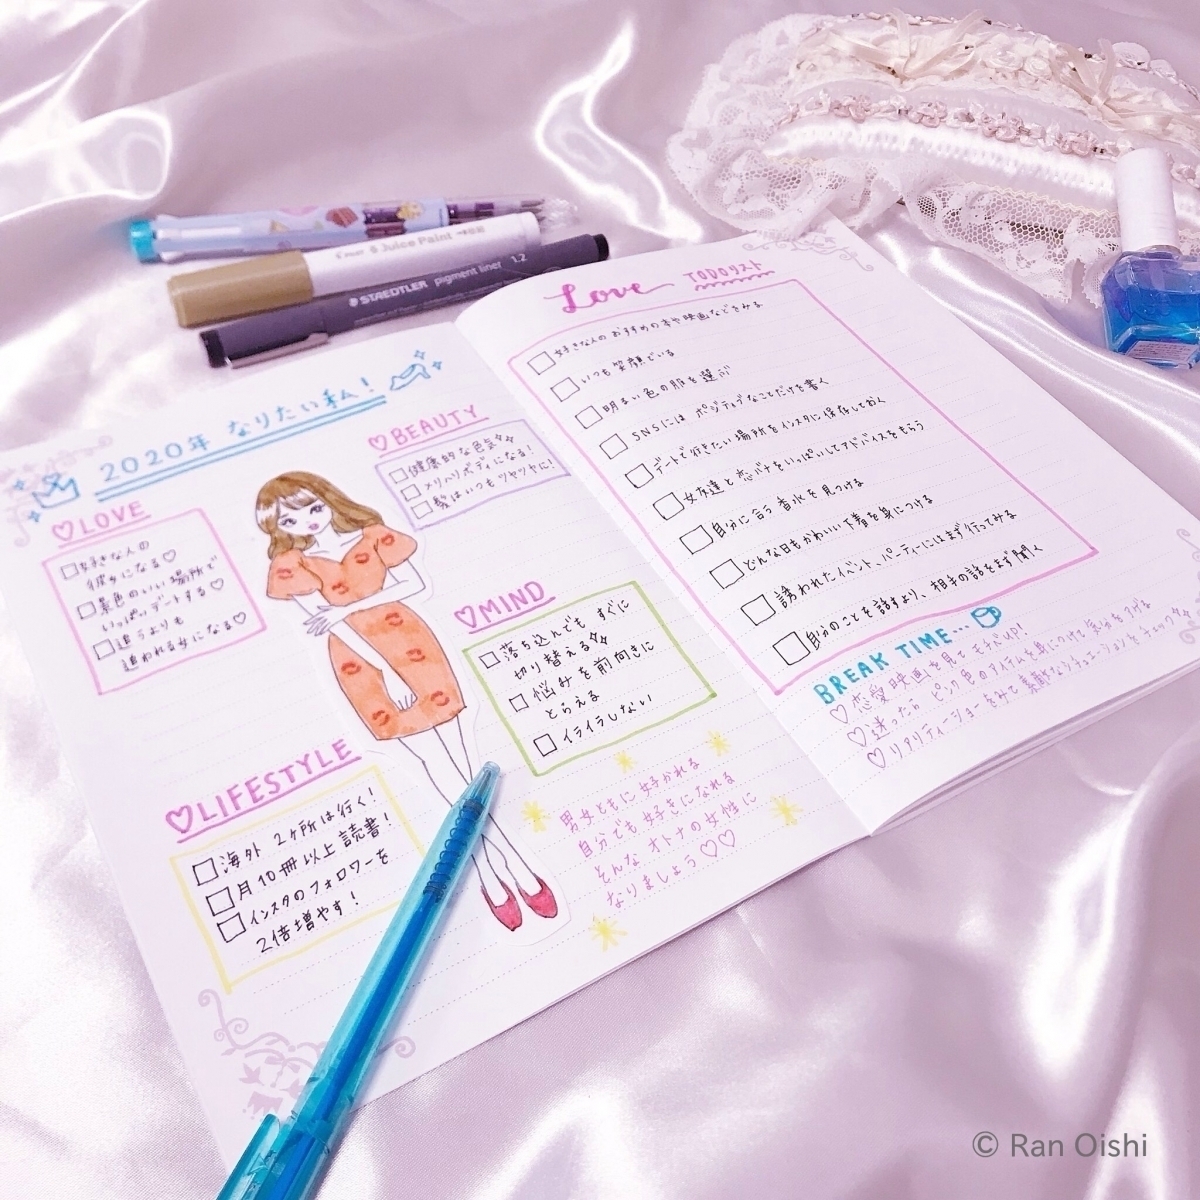 2020年 なりたい私!
♡LOVE
□好きな人の
彼女になる♡
□景色のいい場所で
いっぱいデートする♡
□追うよりも
追われる女になる♡
♡BEAUTY
□健康的な色気
□メリハリボディになる!
□髪はいつもツヤツヤに!
♡MIND
□落ち込んでも すぐに
切り替える
□悩みを前向きに
とらえる
□イライラしない
♡LIFESTYLE
□海外 2ヶ所は行く!
□月10冊以上読書!
□インスタのフォロワーを
2倍増やす!
男女ともに好かれる
自分でも好きになれる
そんなオトナの女性に
なりましょう♡♡
Love TODOリスト
□好きな人のおすすめの本や映画などをみる
□いつも笑顔でいる
□明るい色の服を選ぶ
□SNSには ポジティブなことだけを書く
□デートで行きたい場所をインスタに保存しておく
□女友達と恋バナをいっぱいしてアドバイスをもらう
□自分に合う香水を見つける
□どんな日もかわいい下着を身につける
□誘われたイベント、パーティーにはまず行ってみる
□自分のことを話すより、相手の話をまず聞く
BREAK TIME…
♡恋愛映画を見てモチベUP!
♡迷ったら ピンク色のアイテムを身につけて気分を上げる
♡リアリティーショーをみて素敵なシチュエーションをチェック
Pilot Juice Paint
STAEDTLER pigment liner 1.2
© Ran Oishi